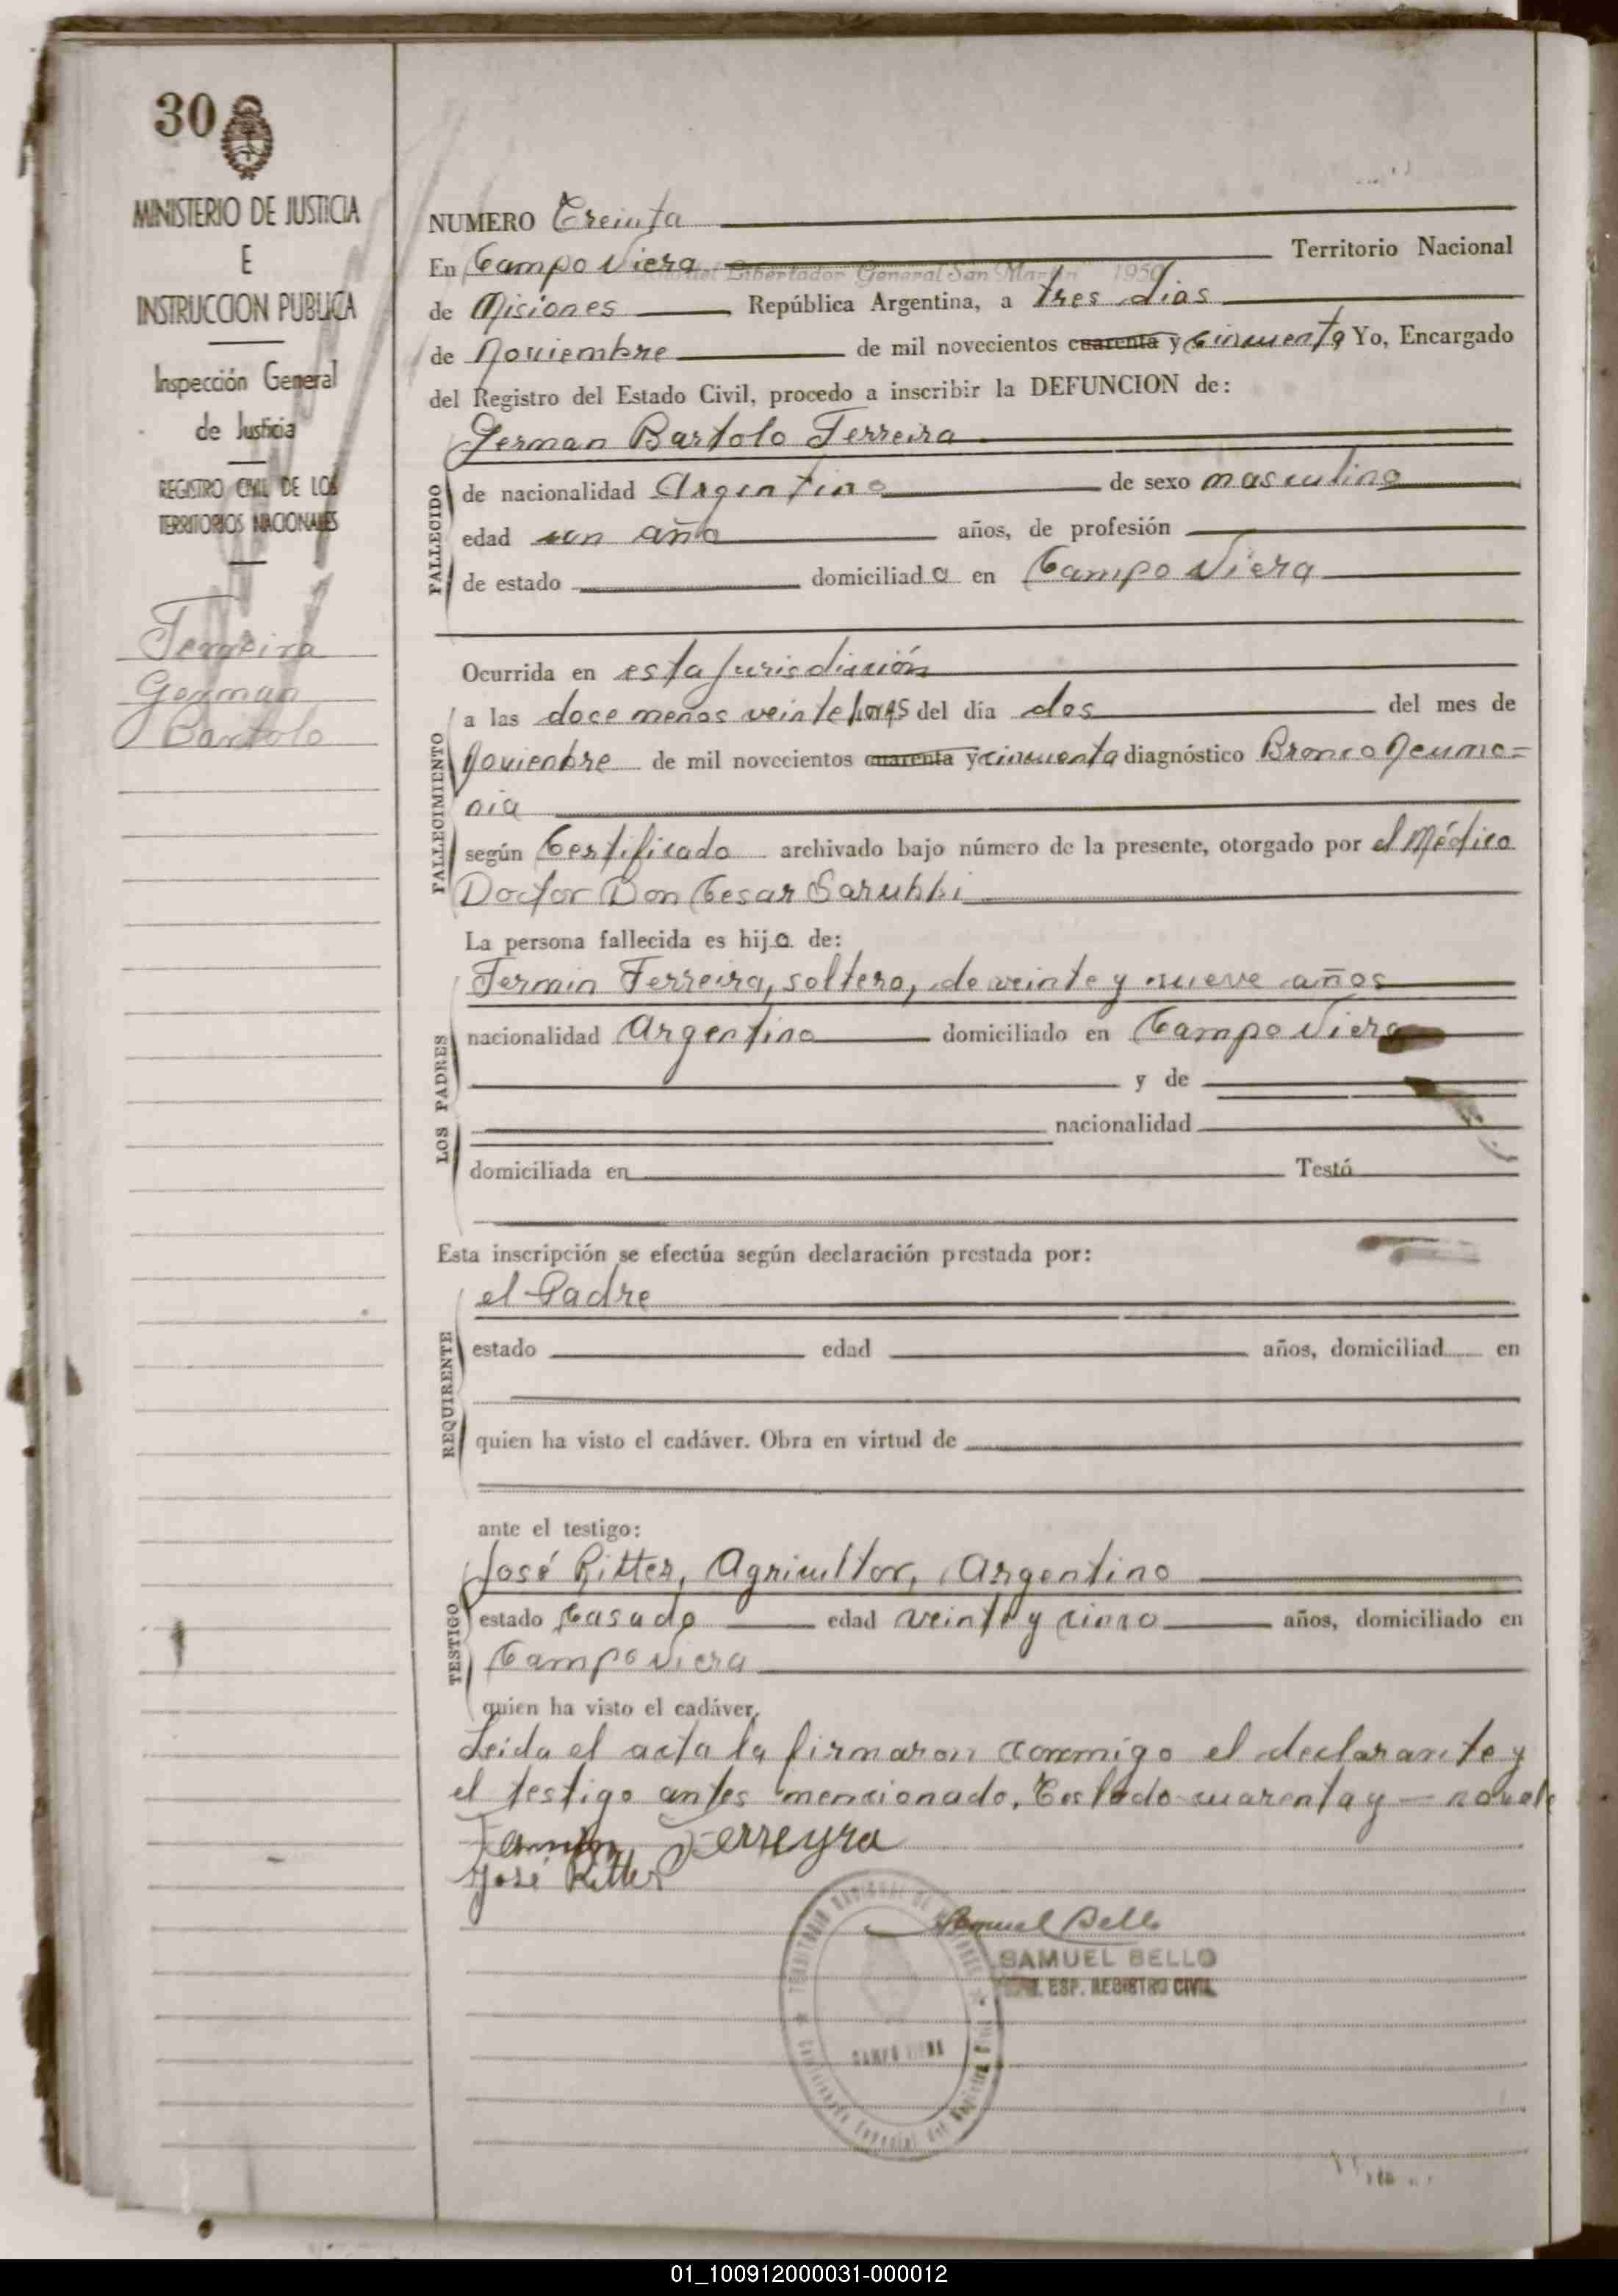 30
MINISTERIO DE JUSTICIA
E
INSTRUCCION PUBLICA
Inspección General
de Justicia
REGISTRO CIVIL DE LOS
TERRITORIOS NACIONALES
Ferreira
German
Bartolo
NUMERO Treinta
En Campo Viera Territorio Nacional
del Libertador General San Martín 1950
de Misiones República Argentina, a tres dias
de Noviembre de mil novecientos cuarenta y cincuenta Yo, Encargado
del Registro del Estado Civil, procedo a inscribir la DEFUNCION de:
German Bartolo Ferreira
FALLECIDO
de nacionalidad Argentino de sexo masculino
edad un año años, de profesión
de estado domiciliado en Campo Viera
FALLECIMIENTO
Ocurrida en esta Jurisdicción
a las doce menos veinte horas del día dos del mes de
Noviembre de mil novecientos cuarenta y cincuenta diagnóstico Bronco Neumo=
nia
según Certificado archivado bajo número de la presente, otorgado por el Médico
Doctor Don Cesar Sarubbi
LOS PADRES
La persona fallecida es hijo de:
Fermin Ferreira, soltero, de veinte y nueve años
nacionalidad Argentino domiciliado en Campo Viera
y de
nacionalidad
domiciliada en Testó
Esta inscripción se efectúa según declaración prestada por:
REQUIRENTE
el Padre
estado edad años, domiciliad en
quien ha visto el cadáver. Obra en virtud de
ante el testigo:
TESTIGO
José Ritter, Agricultor, Argentino
estado Casado edad veinte y cinco años, domiciliado en
Campo Viera
quien ha visto el cadáver.
Leida el acta la firmaron conmigo el declarante y
el testigo antes mencionado. Testado cuarenta y — no vale
Fermin Ferreyra
José Ritter
Samuel Bello
SAMUEL BELLO
ESP. REGISTRO CIVIL
TERRITORIO NACIONAL DE MISIONES
CAMPO VIERA
01_100912000031-000012